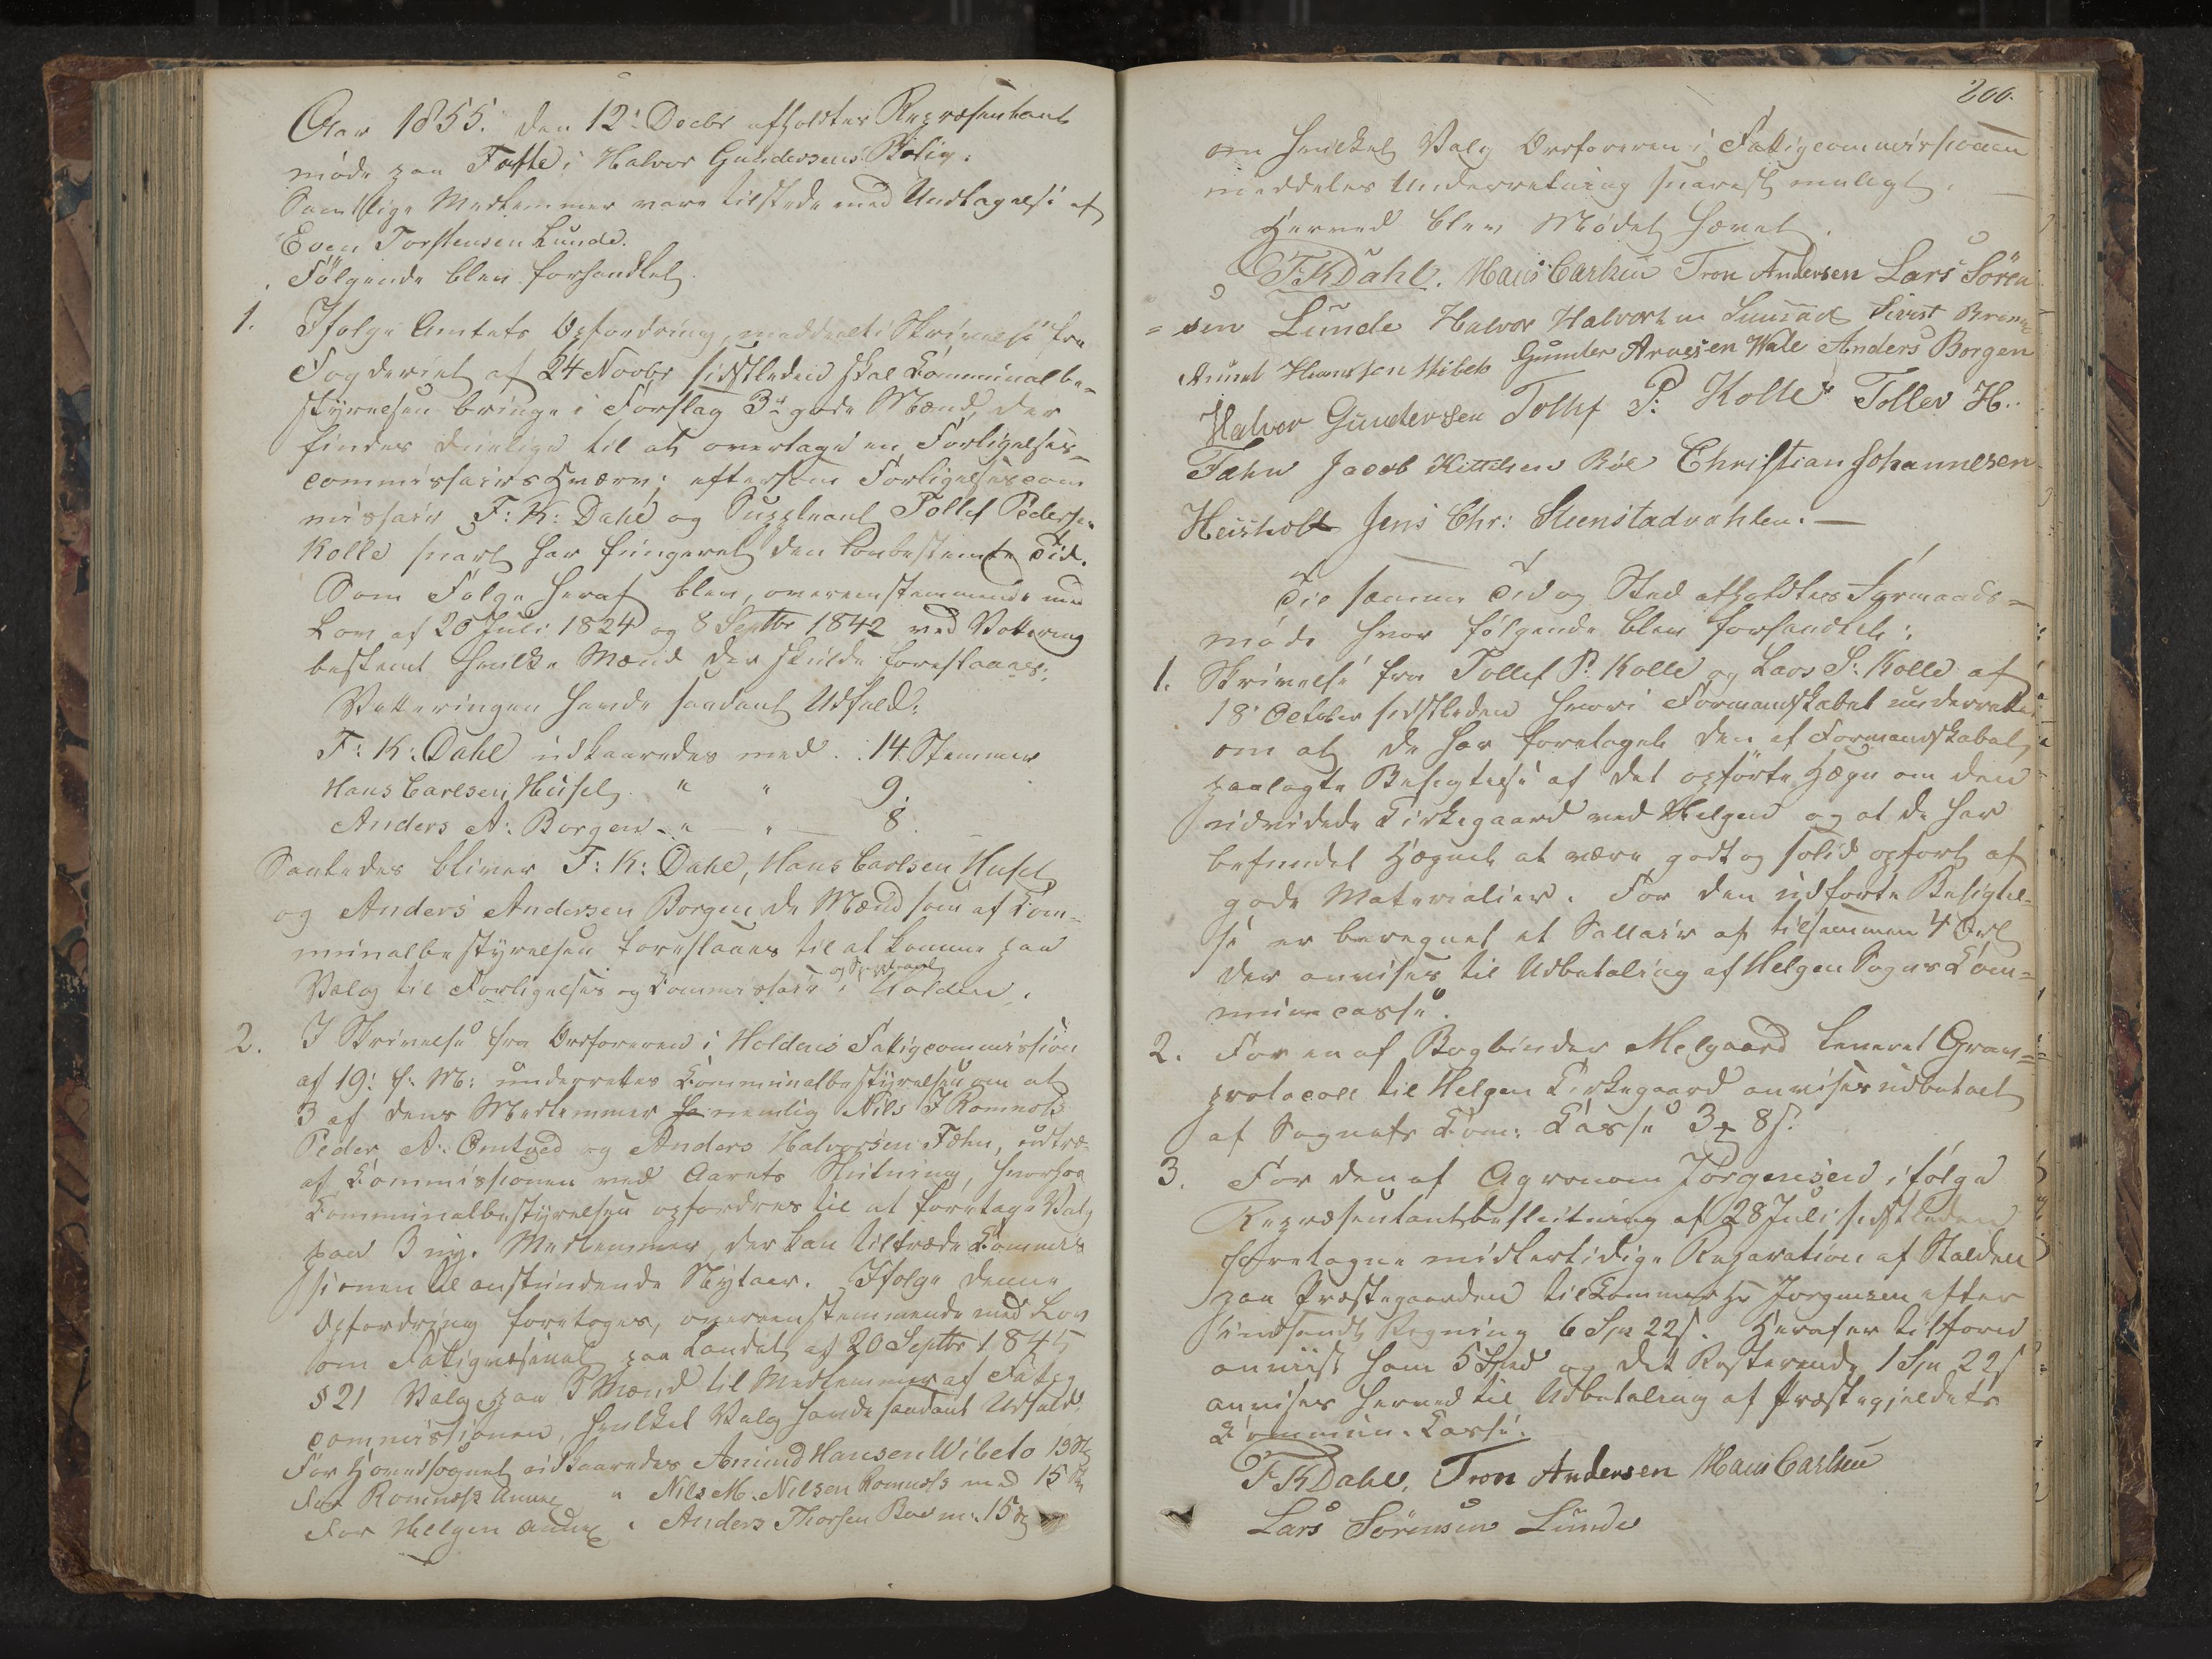 Aar 1855. den 12' Decbr afholdtes Repræsentant
møde paa Tofte i Halvor Gundersens Bolig.
Samtlige Medlemmer vare tilstede med Undtagelse af
Even Torstensen Lunde.
Følgende blev forhandlet
1. Ifølge Amtets Opfordring, meddeelt i Skrivelse fra
Fogderiet af 24 Novbr sidstleden skal Communalbe-
styrelsen bringe i Forslag 3de gode Mænd, der
findes duelige til at overtage en Forligelses-
commissairs Hverv; eftersom Forligelsescom
missair F: K: Dahl og Suppleant Tollef Pedersen
Kolle snart har fungeret den lovbestemte Tid.
Som Følge heraf blev, overeenstemmende med
Lov af 20 Juli 1824 og 8 Septbr 1842 ved Vottering
bestemt hvilke Mænd der skulde foreslaaes.
Votteringen havde saadant Udfald:
F: K: Dahl udkaaredes med . . 14 Stemmer
Hans Carlsen Husel " " 9.
Anders A: Borgen - " - " - 8
Saaledes bliver F: K: Dahl, Hans Carlsen Husel
og Anders Andersen Borgen de Mænd som af Com-
munalbestyrelsen foreslaaes til at komme paa
og Suppleant
Valg til Forligelses og Commissair i Holden.
2. I Skrivelse fra Ordføreren i Holdens Fattigcommission
af 19' f: M: underrettes Communalbestyrelsen om at
3 af dens Medlemmer nemlig Nils J Romnes
Peder A: Omtved og Anders Halvorsen Fæhn, udtræ-
af Commissionen ved Aarets Slutning, hvorfor
Communalbestyrelsen opfordres til at foretage Valg
paa 3 nye Medlemmer, der kan tiltræde Commis
sionen til anstundende Nytaar. Ifølge denne
Opfordring foretoges, overeenstemmende med Lov
om Fattigvæsenet paa Landet af 20 Septbr 1845
§ 21 Valg paa 3 Mænd til Medlemmer af Fattig
commissionen, hvilket Valg havde saadant Udfald:
For Hovedsognet udkaaredes Amund Hansen Wibeto 13 St
For Romnes Annex " Nils M. Nilsen Romnes med 15 St
For Helgen Annex " Anders Thorsen Boe m: 15 St
200.
om hvilket Valg Ordføreren i Fattigcommissionen
meddeles Underretning snarest muligt. —
Hermed blev Mødet hævet.
F K Dahl. Hans Carlsen Tron Andersen Lars Sören
= sen Lunde Halvor Halvorsen Sivert
Amund Hansen Wibeto Gunder Arnesen Anders Borgen
Halvor Gundersen Tollef P: Kolle Tollev H.
Fæhn Jacob Kittilsen Böe Christian Johannesen
Heisholt Jens Chr: Steenstadvahlen. —
Til samme Tid og Sted afholdtes Formands-
møde hvor følgende blev forhandlet:
1. Skrivelse fra Tollef P: Kolle og Lars S: Kolle af
18' October sidstleden hvori Formandskabet underrettes
om at de har foretaget den af Formandskabet
paalagte Besigtelse af det opførte Hægn om den
udvidede Kirkegaard ved Helgen og at de har
befundet Hægnet at være godt og solid opført af
gode Materialier. For den udførte Besigtel-
se er beregnet et Sallair af tilsammen 4 Ort
der anvises til Udbetaling af Helgen Sogns Com-
munecasse.
2. For en af Bogbinder Melgaard leveret Grav-
protocoll til Helgen Kirkegaard anvises udbetalt
af Sognets Com: Casse 3 8 s.
3. For den af Agronom Jørgensen, ifølge
Repræsentantbeslutning af 28 Juli sidstleden
foretagne midlertidige Reparation af Stalden
paa Præstegaarden tilkommer Hr Jørgensen efter
indsendt Regning 6 Spd 22 s. Heraf er tilforn
anviist ham 5 Spd og det Resterende 1 Spd 22 s
anvises herved til Udbetaling af Præstegjeldets
Commun. Casse.
F K Dahl, Tron Andersen Hans Carlsen
Lars Sörensen Lunde